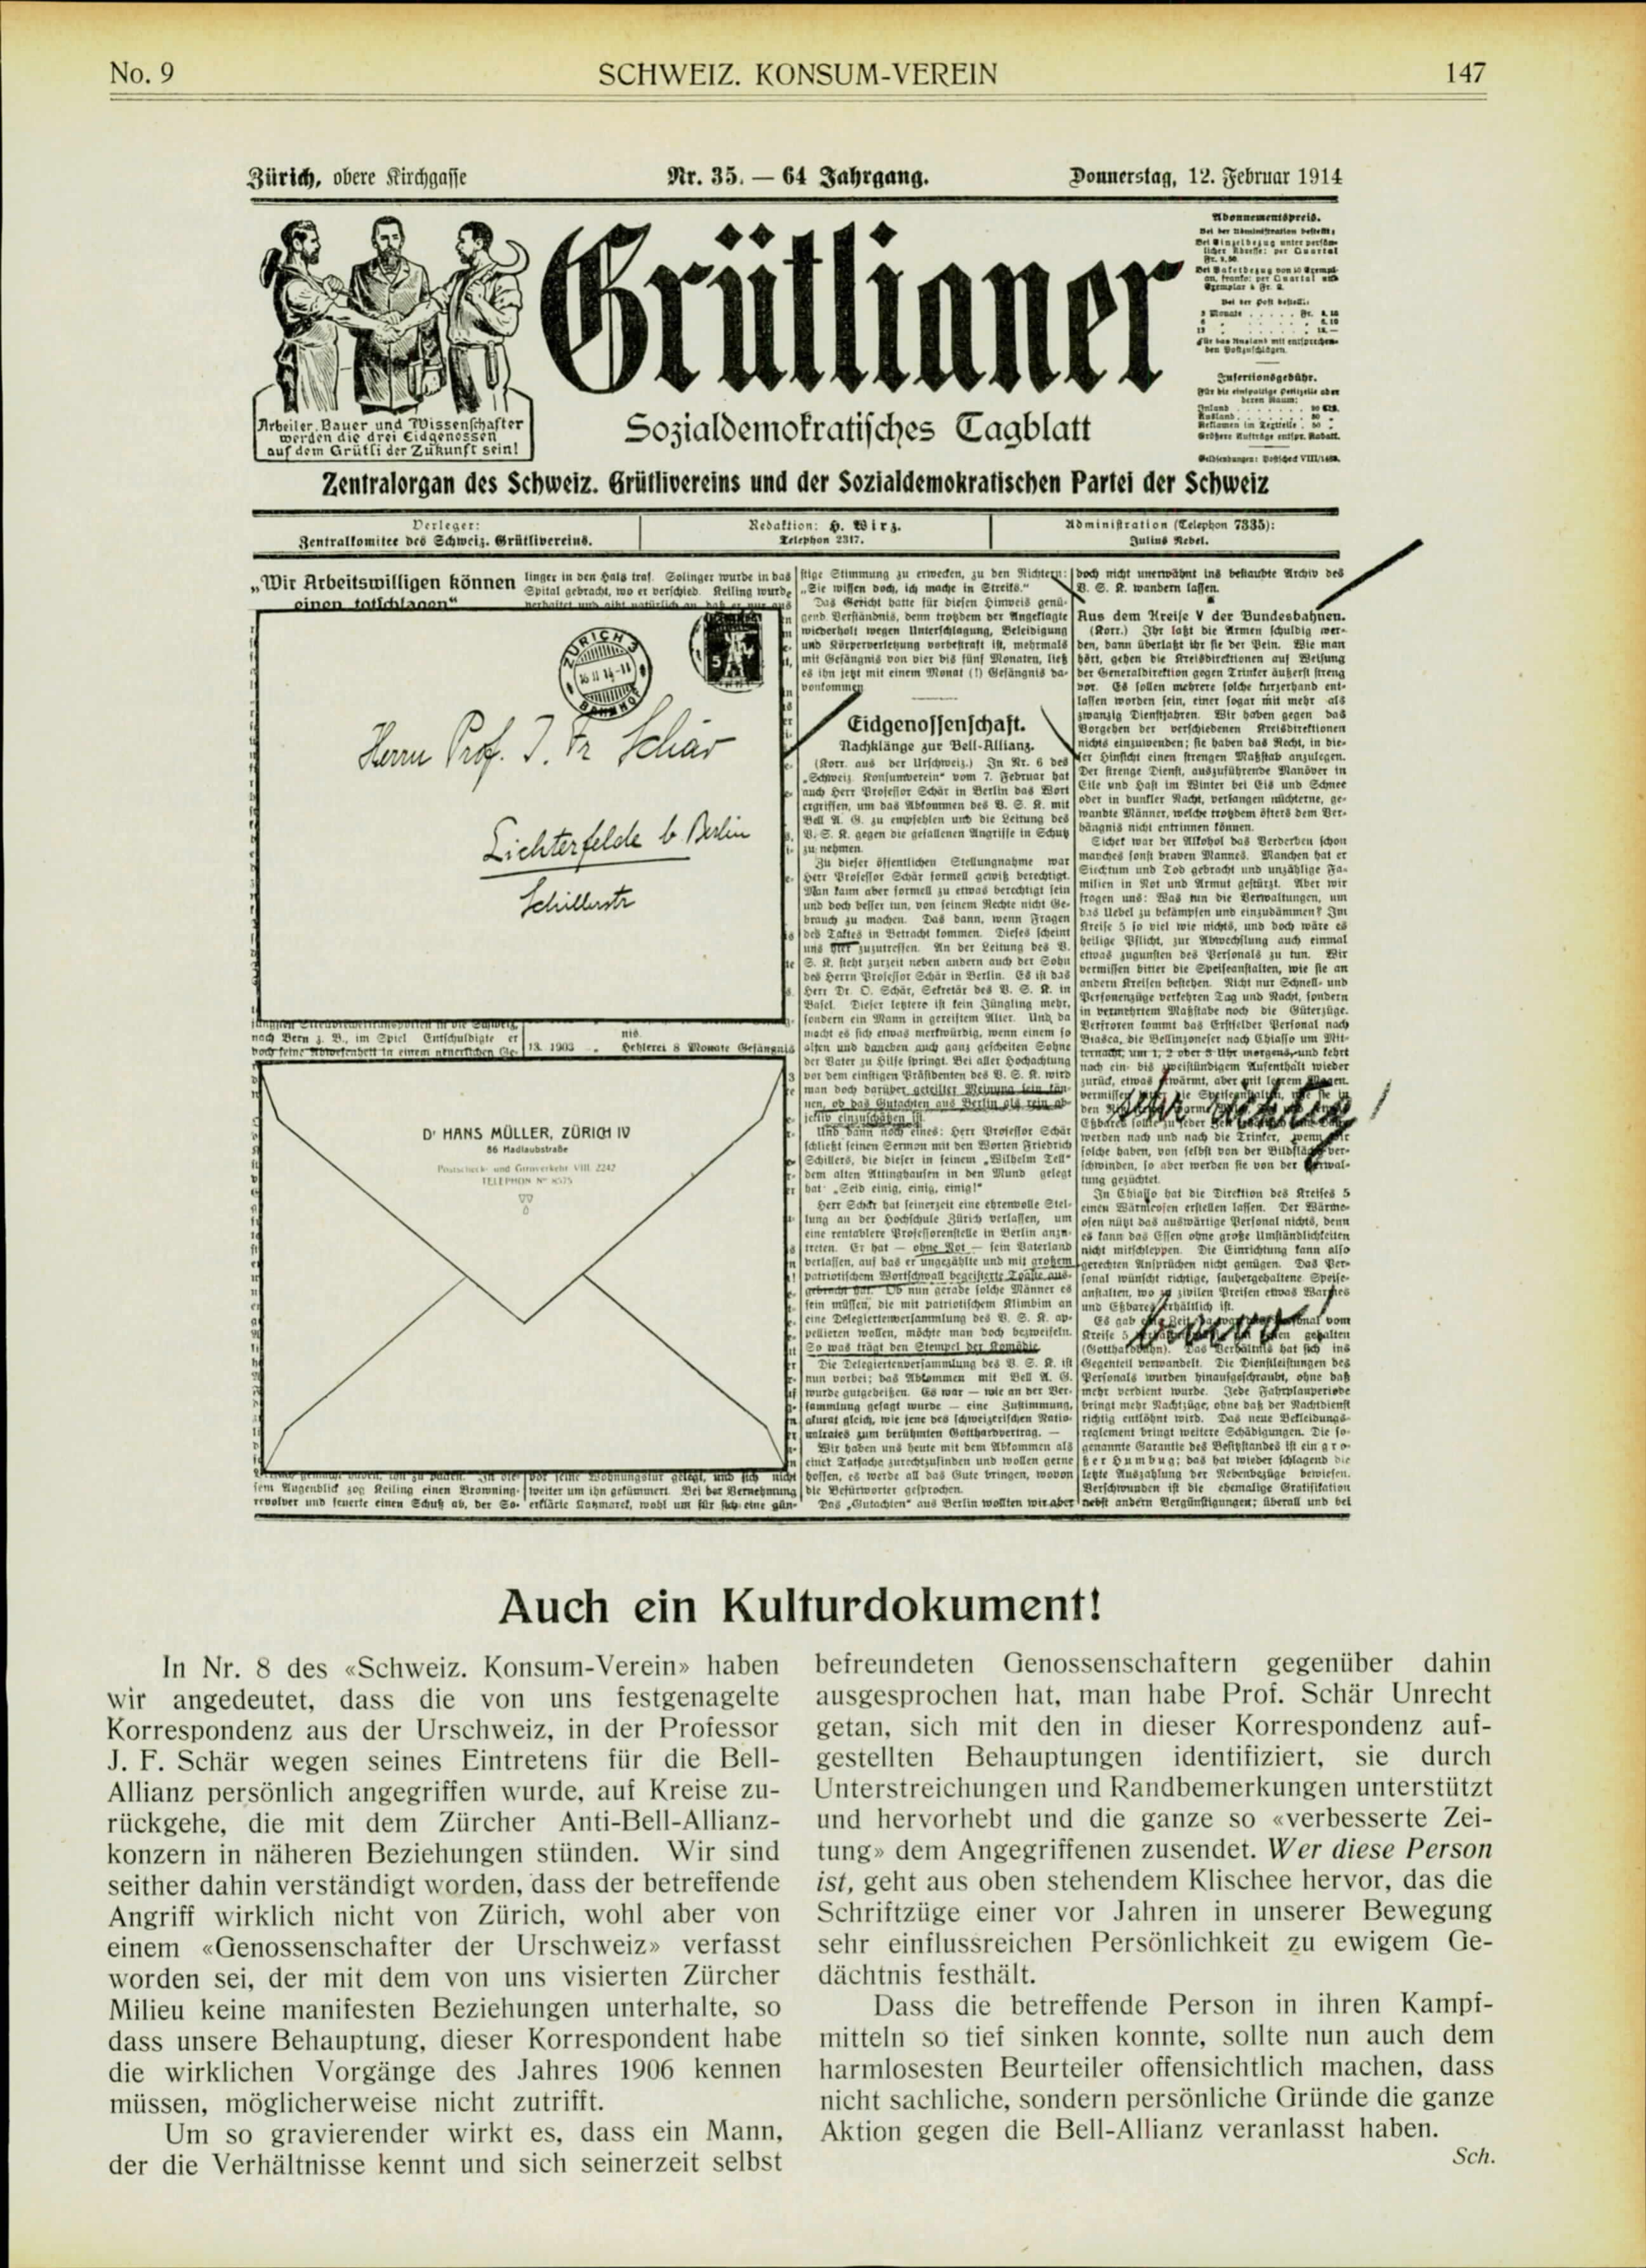 No. 9
SCHWEIZ. KONSUM-VEREIN
147
Zürich, obere Kirchgasse
Nr. 35. — 64 Jahrgang.
Donnerstag, 12. Februar 1914
Grütlianer
Arbeiter, Bauer und Wissenschafter
werden die drei Eidgenossen
auf dem Grütli der Zukunft sein!
Sozialdemokratisches Tagblatt
Abonnementspreis.
Insertionsgebühr.
Zentralorgan des Schweiz. Grütlivereins und der Sozialdemokratischen Partei der Schweiz
Verleger:
Zentralkomitee des Schweiz. Grütlivereins.
Redaktion: H. Wirz.
Telephon 2317.
Administration (Telephon 7335):
Julius Rebel.
„Wir Arbeitswilligen können
einen totschlagen“
linger in den Hals traf. Solinger wurde in das
Spital gebracht, wo er verschied. Keiling wurde
ZÜRICH 3
BAHNHOF
5
Herrn Prof. J. Fr Schär
Lichterfelde b. Berlin
Schillerstr
nach Bern z. B., im Spiel Entschuldigte er
13. 1903
Hehlerei 8 Monate Gefängnis
Dr HANS MÜLLER, ZÜRICH IV
86 Hadlaubstraße
Postscheck- und Giroverkehr VIII 2242
TELEPHON No 8575
sem Augenblick zog Keiling einen Browning-
revolver und feuerte einen Schuß ab, der So-
vor seine Wohnungstür gelegt, und sich nicht
weiter um ihn gekümmert. Bei der Vernehmung
erklärte Kaymarek, wohl um für sich eine gün-
stige Stimmung zu erwecken, zu den Richtern:
„Sie wissen doch, ich mache in Streiks.“
Das Gericht hatte für diesen Hinweis genü-
gend Verständnis, denn trotzdem der Angeklagte
wiederholt wegen Unterschlagung, Beleidigung
und Körperverletzung vorbestraft ist, mehrmals
mit Gefängnis von vier bis fünf Monaten, ließ
es ihn jetzt mit einem Monat (!) Gefängnis da-
vonkommen.
Eidgenossenschaft.
Nachklänge zur Bell-Allianz.
(Korr. aus der Urschweiz.) In Nr. 6 des
„Schweiz. Konsumverein“ vom 7. Februar hat
auch Herr Professor Schär in Berlin das Wort
ergriffen, um das Abkommen des V. S. K. mit
Bell A. G. zu empfehlen und die Leitung des
V. S. K. gegen die gefallenen Angriffe in Schutz
zu nehmen.
Zu dieser öffentlichen Stellungnahme war
Herr Professor Schär formell gewiß berechtigt.
Man kann aber formell zu etwas berechtigt sein
und doch besser tun, von seinem Rechte nicht Ge-
brauch zu machen. Das dann, wenn Fragen
des Taktes in Betracht kommen. Dieses scheint
uns hier zuzutreffen. An der Leitung des V.
S. K. steht zurzeit neben andern auch der Sohn
des Herrn Professor Schär in Berlin. Es ist das
Herr Dr. O. Schär, Sekretär des V. S. K. in
Basel. Dieser letztere ist kein Jüngling mehr,
sondern ein Mann in gereiftem Alter. Und da
macht es sich etwas merkwürdig, wenn einem so
alten und daneben auch ganz gescheiten Sohne
der Vater zu Hilfe springt. Bei aller Hochachtung
vor dem einstigen Präsidenten des V. S. K. wird
man doch darüber geteilter Meinung sein kön-
nen, ob das Gutachten aus Berlin als rein ob-
jektiv einzuschätzen ist.
Und dann noch eines: Herr Professor Schär
schließt seinen Sermon mit den Worten Friedrich
Schillers, die dieser in seinem „Wilhelm Tell“
dem alten Attinghausen in den Mund gelegt
hat: „Seid einig, einig, einig!“
Herr Schär hat seinerzeit eine ehrenvolle Stel-
lung an der Hochschule Zürich verlassen, um
eine rentablere Professorenstelle in Berlin anzu-
treten. Er hat — ohne Not — sein Vaterland
verlassen, auf das er ungezählte und mit großem
patriotischem Wortschwall begeisterte Toaste aus-
gebracht hat. Ob nun gerade solche Männer es
sein müssen, die mit patriotischem Klimbim an
eine Delegiertenversammlung des V. S. K. ap-
pellieren wollen, möchte man doch bezweifeln.
So was trägt den Stempel der Komödie.
Die Delegiertenversammlung des V. S. K. ist
nun vorbei; das Abkommen mit Bell A. G.
wurde gutgeheißen. Es war — wie an der Ver-
sammlung gesagt wurde — eine Zustimmung,
akurat gleich, wie jene des schweizerischen Natio-
nalrates zum berühmten Gotthardvertrag. —
Wir haben uns heute mit dem Abkommen als
einer Tatsache zurechtzufinden und wollen gerne
hoffen, es werde all das Gute bringen, wovon
die Befürworter gesprochen.
Das „Gutachten“ aus Berlin wollten wir aber
doch nicht unerwähnt ins bestaubte Archiv des
V. S. K. wandern lassen.
Aus dem Kreise V der Bundesbahnen.
(Korr.) Ihr laßt die Armen schuldig wer-
den, dann überlaßt ihr sie der Pein. Wie man
hört, gehen die Kreisdirektionen auf Weisung
der Generaldirektion gegen Trinker äußerst streng
vor. Es sollen mehrere solche kurzerhand ent-
lassen worden sein, einer sogar mit mehr als
zwanzig Dienstjahren. Wir haben gegen das
Vorgehen der verschiedenen Kreisdirektionen
nichts einzuwenden; sie haben das Recht, in die-
ser Hinsicht einen strengen Maßstab anzulegen.
Der strenge Dienst, auszuführende Manöver in
Eile und Hast im Winter bei Eis und Schnee
oder in dunkler Nacht, verlangen nüchterne, ge-
wandte Männer, welche trotzdem öfters dem Ver-
hängnis nicht entrinnen können.
Sicher war der Alkohol das Verderben schon
manches sonst braven Mannes. Manchen hat er
Siechtum und Tod gebracht und unzählige Fa-
milien in Not und Armut gestürzt. Aber wir
fragen uns: Was tun die Verwaltungen, um
das Uebel zu bekämpfen und einzudämmen? Im
Kreise 5 so viel wie nichts, und doch wäre es
heilige Pflicht, zur Abwechslung auch einmal
etwas zugunsten des Personals zu tun. Wir
vermissen bitter die Speiseanstalten, wie sie an
andern Kreisen bestehen. Nicht nur Schnell- und
Personenzüge verkehren Tag und Nacht, sondern
in vermehrtem Maßstabe noch die Güterzüge.
Verfroren kommt das Erstfelder Personal nach
Biasca, die Bellinzoneser nach Chiasso um Mit-
ternacht, um 1, 2 oder 3 Uhr morgens, und kehrt
nach ein- bis zweistündigem Aufenthalt wieder
zurück, etwas erwärmt, aber mit leerem Magen.
sehr richtig!
werden nach und nach die Trinker, wenn wir
solche haben, von selbst von der Bildfläche ver-
schwinden, so aber werden sie von der Verwal-
tung gezüchtet.
In Chiasso hat die Direktion des Kreises 5
einen Wärmeofen erstellen lassen. Der Wärme-
ofen nützt das auswärtige Personal nichts, denn
es kann das Essen ohne große Umständlichkeiten
nicht mitschleppen. Die Einrichtung kann also
gerechten Ansprüchen nicht genügen. Das Per-
sonal wünscht richtige, saubergehaltene Speise-
anstalten, wo zu zivilen Preisen etwas Warmes
und Eßbares erhältlich ist.
bravo!
(Gotthardbahn). Das Verhältnis hat sich ins
Gegenteil verwandelt. Die Dienstleistungen des
Personals wurden hinaufgeschraubt, ohne daß
mehr verdient wurde. Jede Fahrplanperiode
bringt mehr Nachtzüge, ohne daß der Nachtdienst
richtig entlöhnt wird. Das neue Bekleidungs-
reglement bringt weitere Schädigungen. Die so-
genannte Garantie des Besitzstandes ist ein gro-
ßer Humbug; das hat wieder schlagend die
letzte Auszahlung der Nebenbezüge bewiesen.
Verschwunden ist die ehemalige Gratifikation
nebst andern Vergünstigungen; überall und bei
Auch ein Kulturdokument!
In Nr. 8 des «Schweiz. Konsum-Verein» haben
wir angedeutet, dass die von uns festgenagelte
Korrespondenz aus der Urschweiz, in der Professor
J. F. Schär wegen seines Eintretens für die Bell-
Allianz persönlich angegriffen wurde, auf Kreise zu-
rückgehe, die mit dem Zürcher Anti-Bell-Allianz-
konzern in näheren Beziehungen stünden. Wir sind
seither dahin verständigt worden, dass der betreffende
Angriff wirklich nicht von Zürich, wohl aber von
einem «Genossenschafter der Urschweiz» verfasst
worden sei, der mit dem von uns visierten Zürcher
Milieu keine manifesten Beziehungen unterhalte, so
dass unsere Behauptung, dieser Korrespondent habe
die wirklichen Vorgänge des Jahres 1906 kennen
müssen, möglicherweise nicht zutrifft.
Um so gravierender wirkt es, dass ein Mann,
der die Verhältnisse kennt und sich seinerzeit selbst
befreundeten Genossenschaftern gegenüber dahin
ausgesprochen hat, man habe Prof. Schär Unrecht
getan, sich mit den in dieser Korrespondenz auf-
gestellten Behauptungen identifiziert, sie durch
Unterstreichungen und Randbemerkungen unterstützt
und hervorhebt und die ganze so «verbesserte Zei-
tung» dem Angegriffenen zusendet. Wer diese Person
ist, geht aus oben stehendem Klischee hervor, das die
Schriftzüge einer vor Jahren in unserer Bewegung
sehr einflussreichen Persönlichkeit zu ewigem Ge-
dächtnis festhält.
Dass die betreffende Person in ihren Kampf-
mitteln so tief sinken konnte, sollte nun auch dem
harmlosesten Beurteiler offensichtlich machen, dass
nicht sachliche, sondern persönliche Gründe die ganze
Aktion gegen die Bell-Allianz veranlasst haben.
Sch.